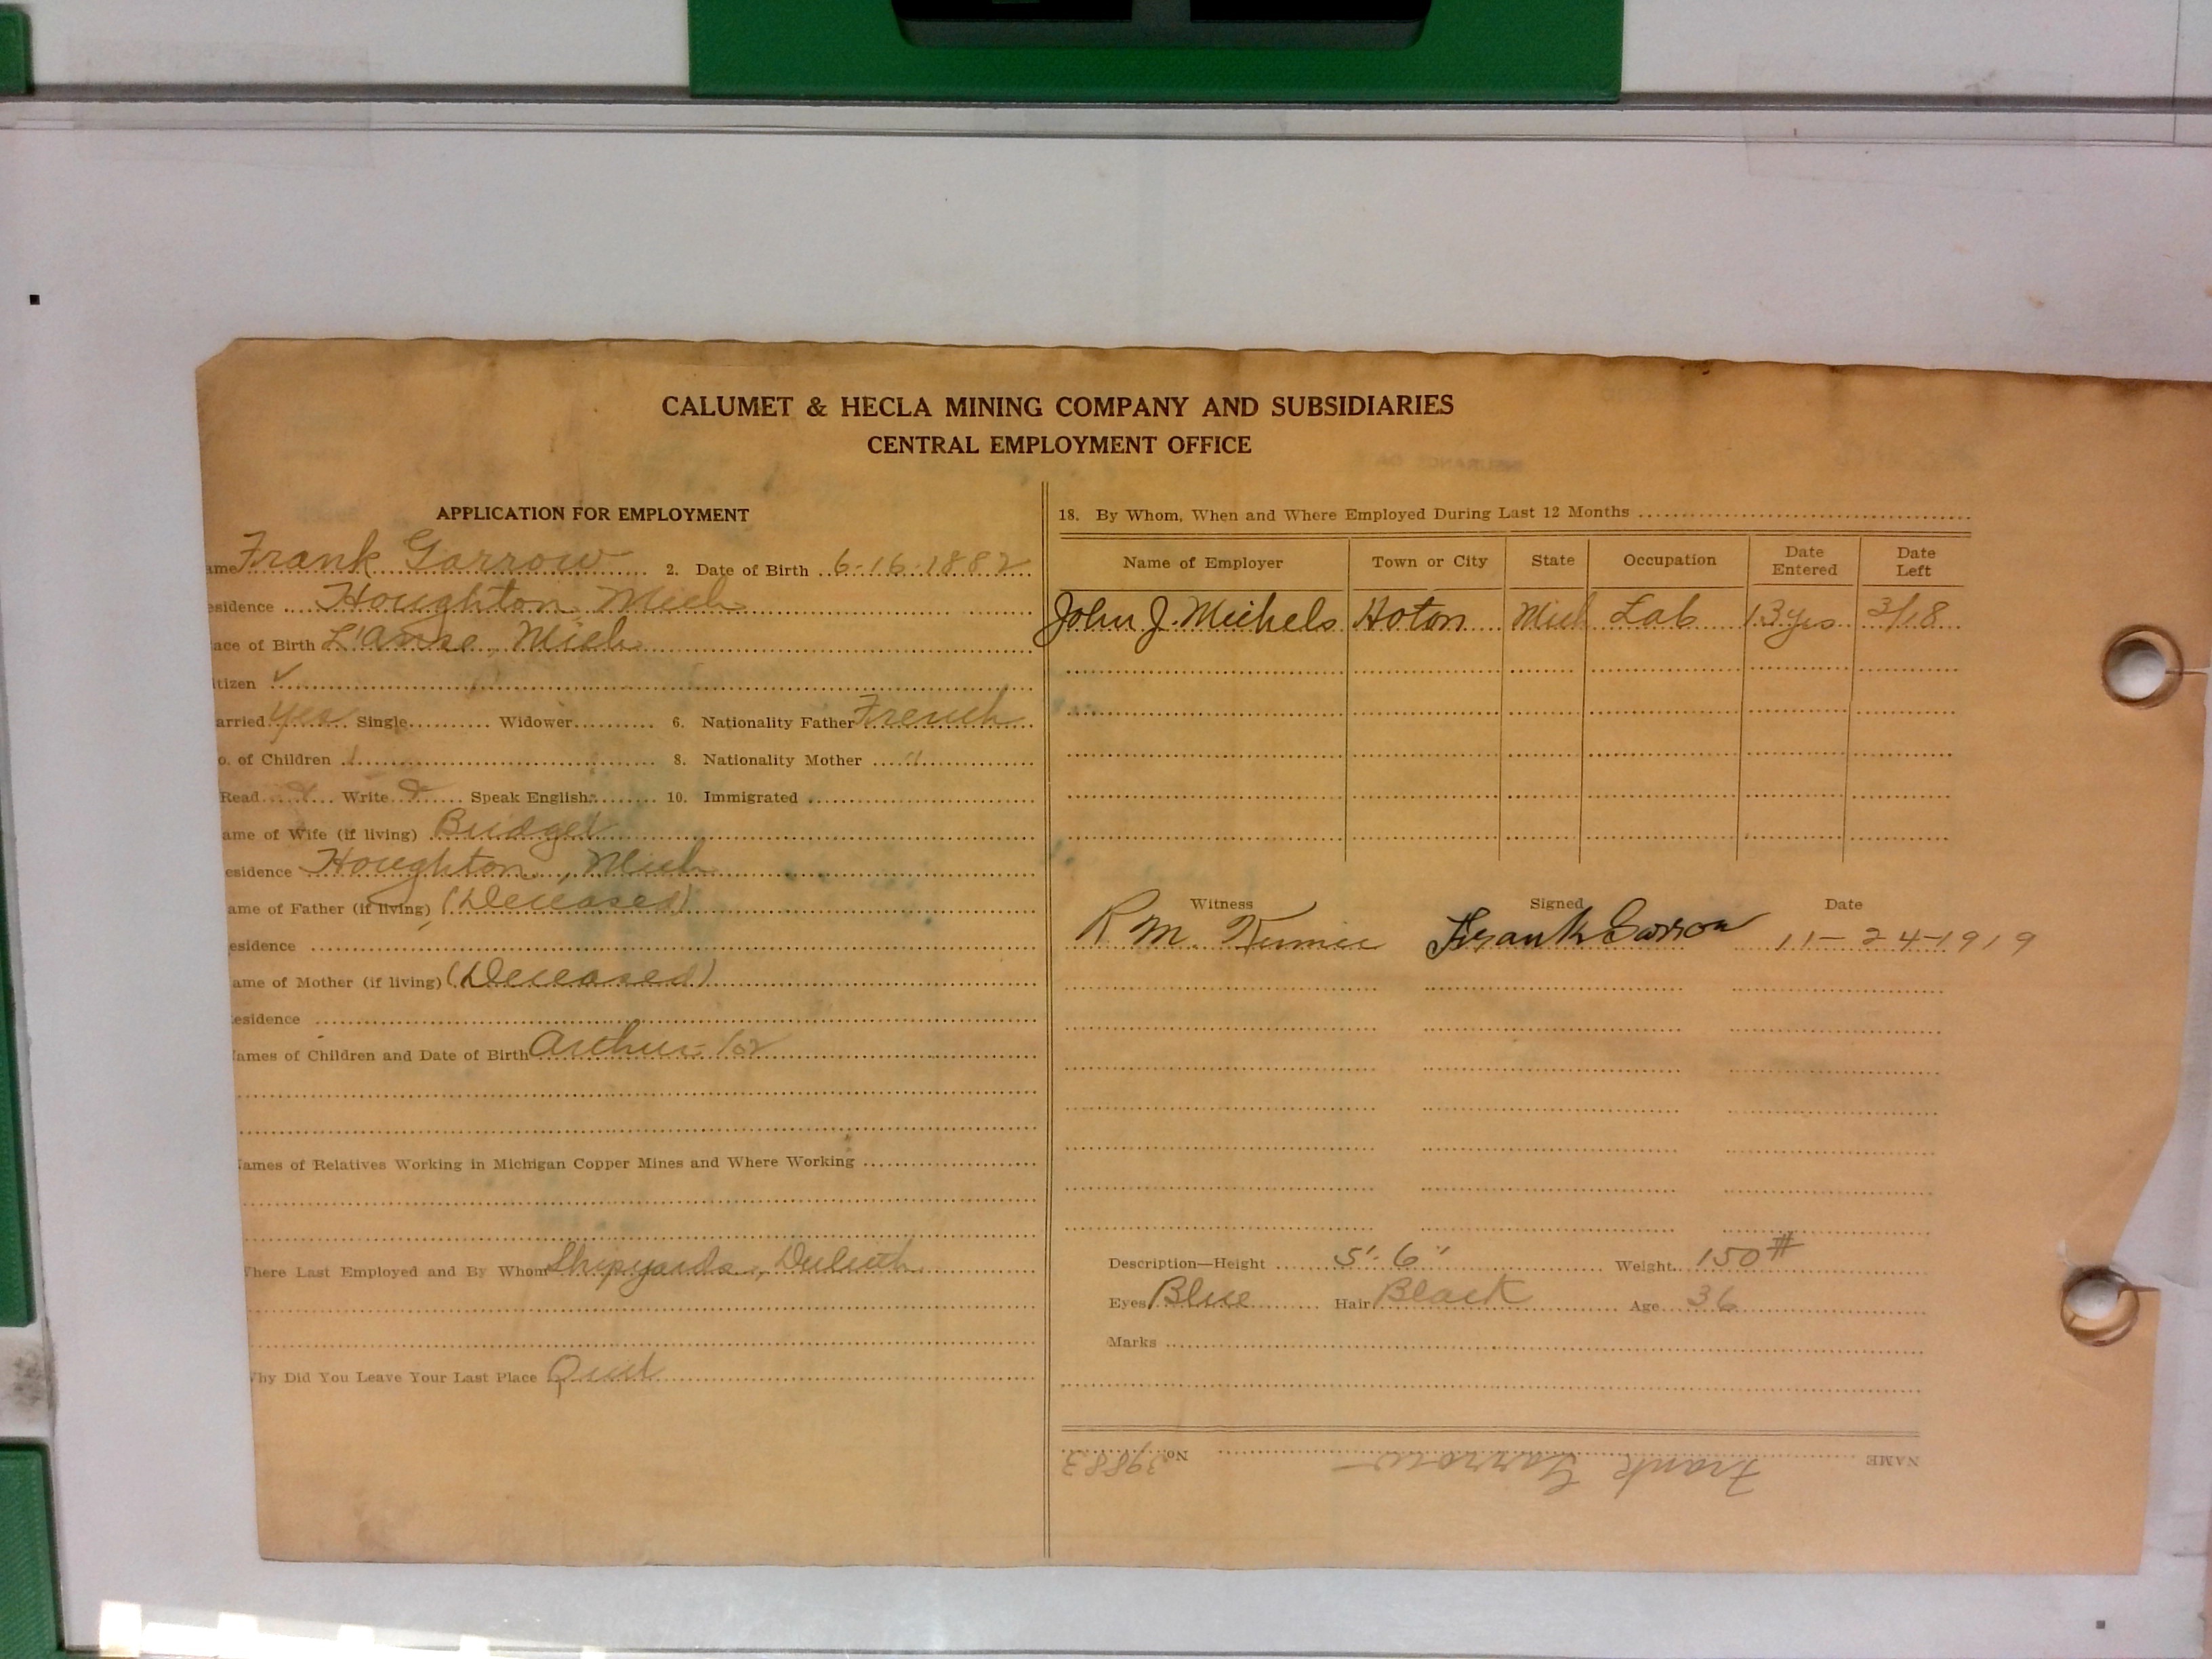 CALUMET & HECLA MINING COMPANY AND SUBSIDIARIES
CENTRAL EMPLOYMENT OFFICE
APPLICATION FOR EMPLOYMENT
ame Frank Garrow 2. Date of Birth 6-16-1882
esidence Houghton, Mich
ace of Birth L'Anse, Mich
itizen ✓
arried yes Single Widower 6. Nationality Father French
o. of Children 1 8. Nationality Mother "
Read Write Speak English 10. Immigrated
ame of Wife (if living) Bridget
esidence Houghton, Mich
ame of Father (if living) (Deceased)
esidence
ame of Mother (if living) (Deceased)
esidence
ames of Children and Date of Birth Arthur
ames of Relatives Working in Michigan Copper Mines and Where Working
here Last Employed and By Whom Shipyards, Duluth
hy Did You Leave Your Last Place Quit
18. By Whom, When and Where Employed During Last 12 Months
Name of Employer Town or City State Occupation Date Entered Date Left
John J. Michels Hoton Mich Lab 13 yrs 3/18
Witness Signed Date
R. M. Frank Garrow 11-24-1919
Description—Height 5' 6" Weight 150 #
Eyes Blue Hair Black Age 36
Marks
NAME Frank Garrow No. 39883